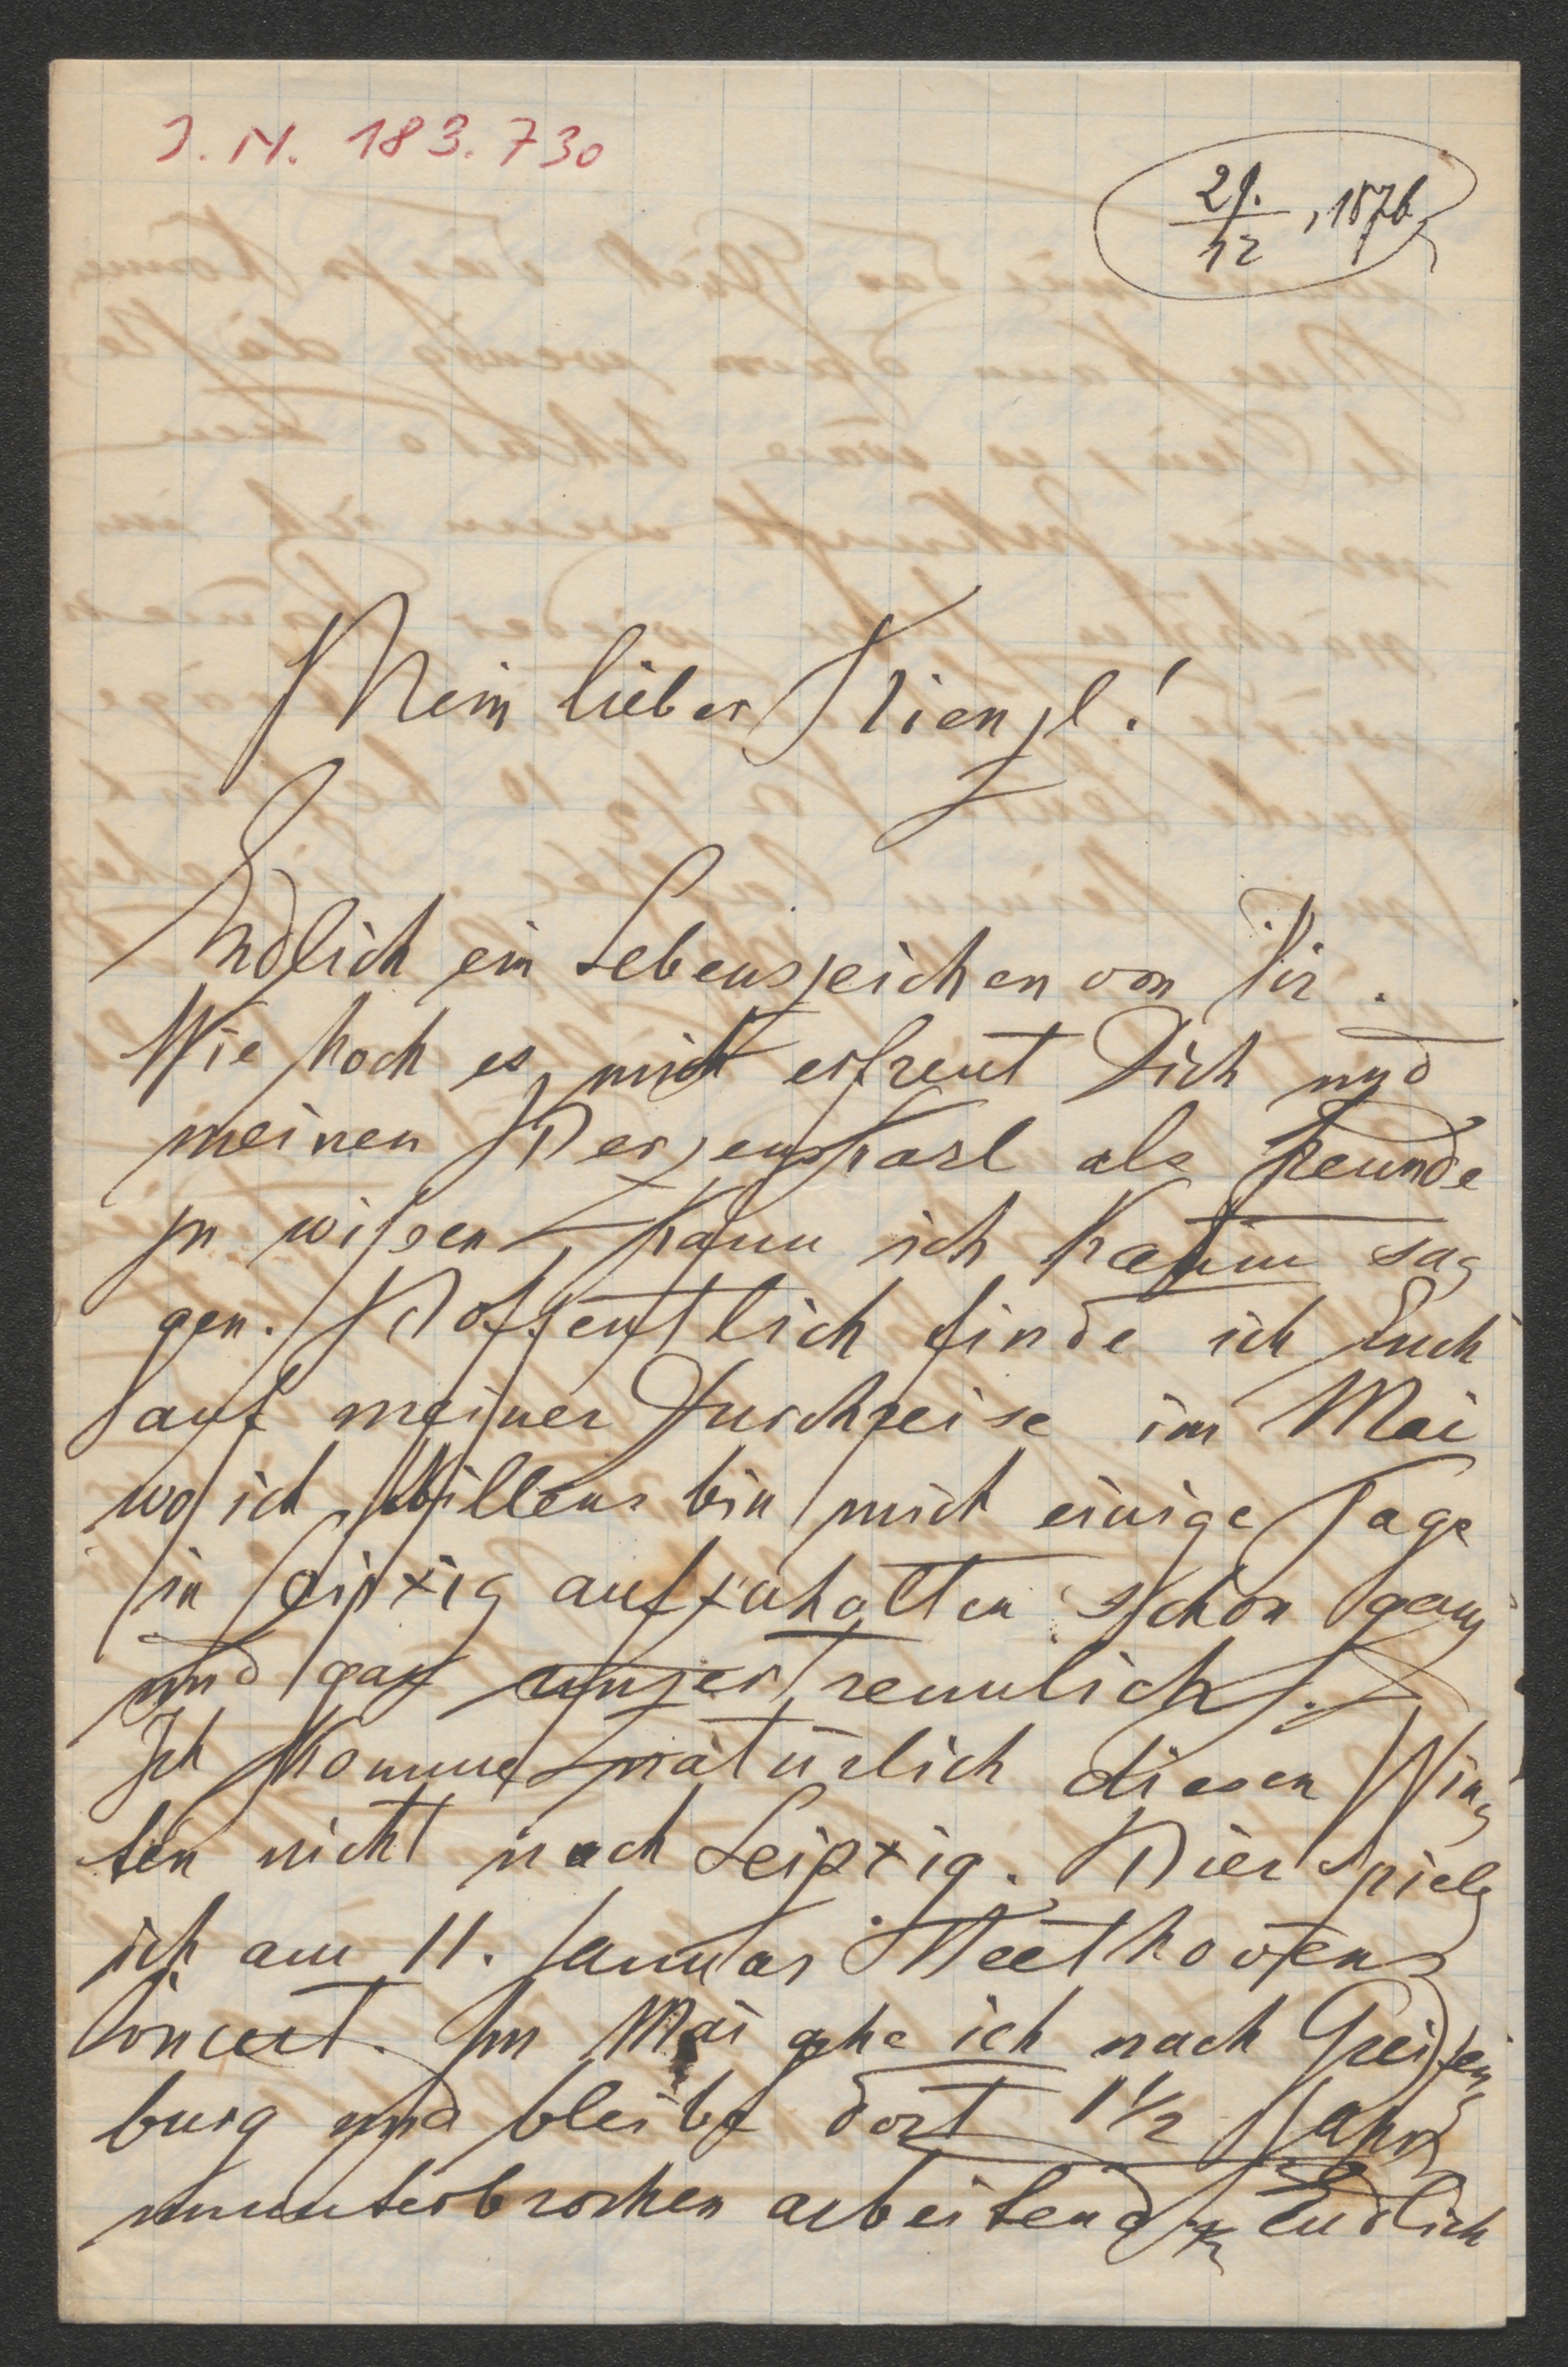 J. N. 183.730
29./12, 1876
Mein lieber Kienzl!
Endlich ein Lebenszeichen von Dir.
Wie hoch es mich erfreut Dich und
meinen HerzensKarl als Freunde
zu wissen, kann ich kaum sa-
gen. Hoffentlich finde ich Euch
auf meiner Durchreise im Mai
wo ich Willens bin mich einige Tage
in Leipzig aufzuhalten schon ganz
und gar unzertrennlich.
Ich komme natürlich diesen Win-
ter nicht nach Leipzig. Hier spiele
ich am 11. Januar Beethovens
Concert. Im Mai gehe ich nach Greifen-
burg und bleibe dort 1 1/2 Jahr
ununterbrochen arbeitend. Endlich